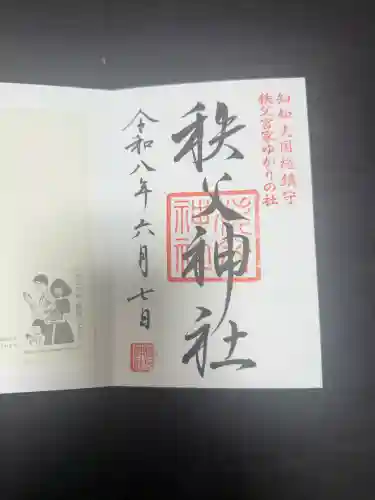 知知夫国総鎮守
秩父宮家ゆかりの社
秩父神社
令和八年六月七日